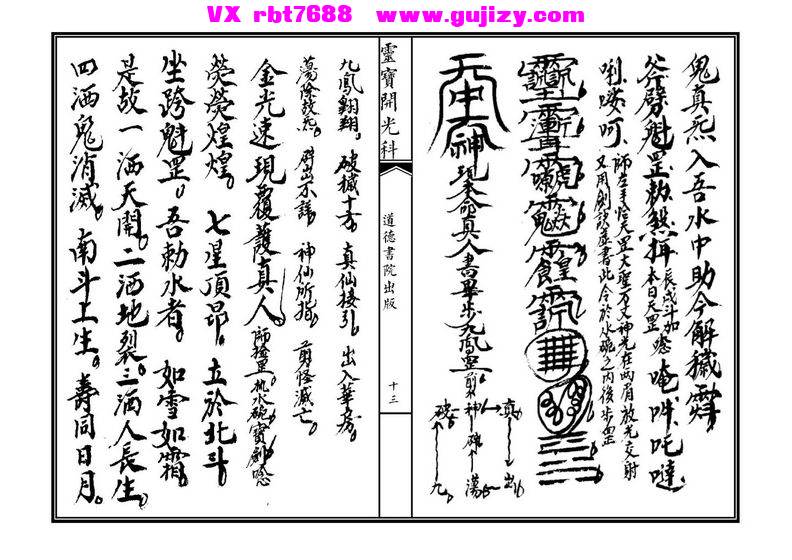 VX rbt7688 www.gujizy.com
鬼真炁入吾水中助今解穢
斧劈魁罡勅煞 辰戌斗加 本日天罡 唵吽吒㗳
唎 呵 師左手掐天罡大聖 神光在兩眉放光交射
又用劍訣虛書此令於水碗之內後步罡
神現本命真人書畢步九鳳罡
真 出
神 蕩
破 九
靈寶開光科
道德書院出版
十三
九鳳翱翔 破穢十方 真仙接引 出入華房
蕩除故炁 出不詳 神仙所指 剪怪滅亡
金光速現覆護真人 師 水碗寶劍唸
熒熒煌煌 七星頂昂 立於北斗
坐跨魁罡 吾勅水者 如雪如霜
是故一洒天開 二洒地裂 三洒人長生
四洒鬼消滅 南斗上生 壽同日月